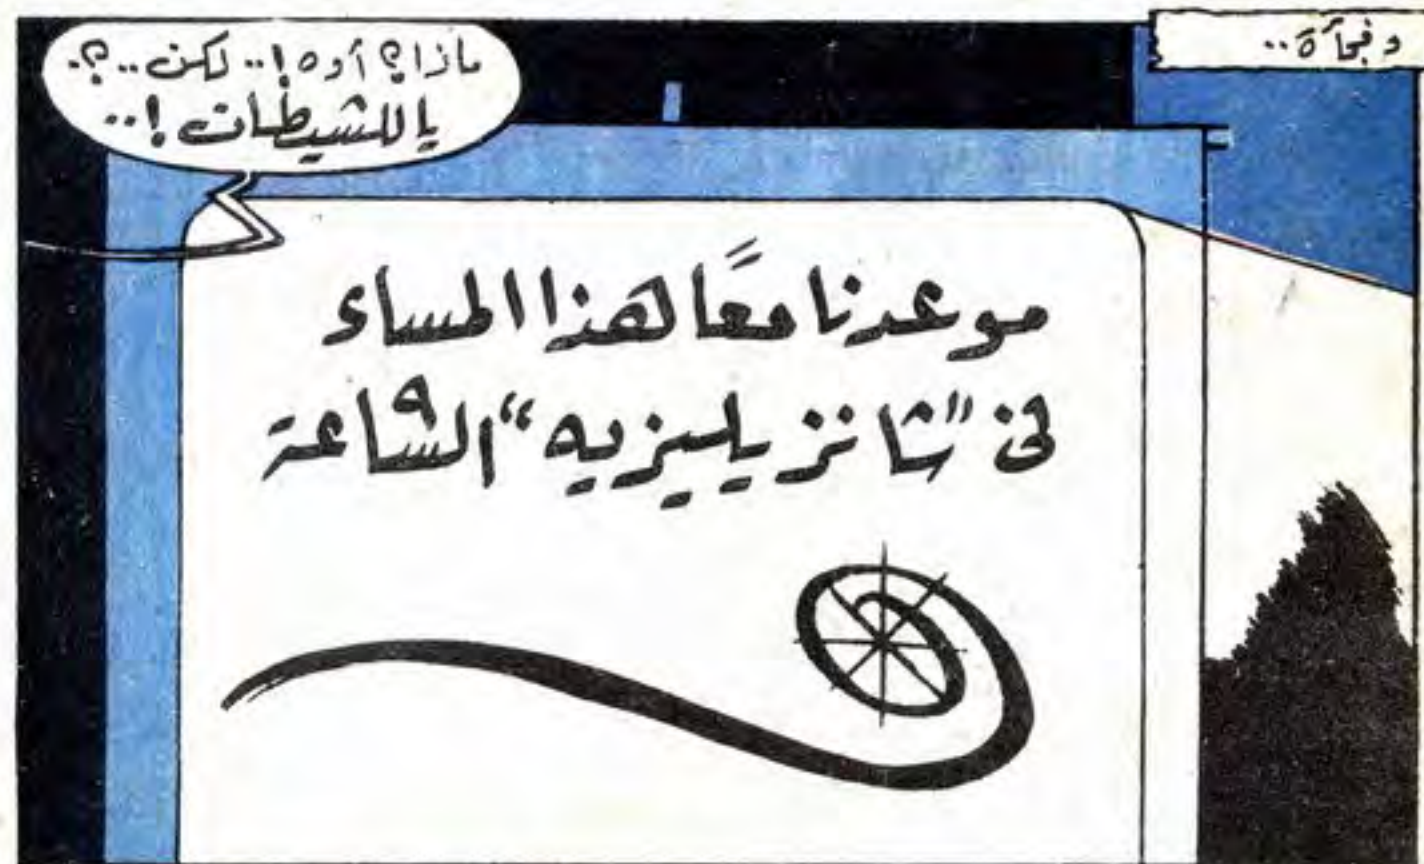 وفجأة..
ماذا؟ أوه!.. لكن..؟.
يا للشيطان!..
موعدنا معًا لهذا المساء
في "شانزيليزيه" الساعة ٩